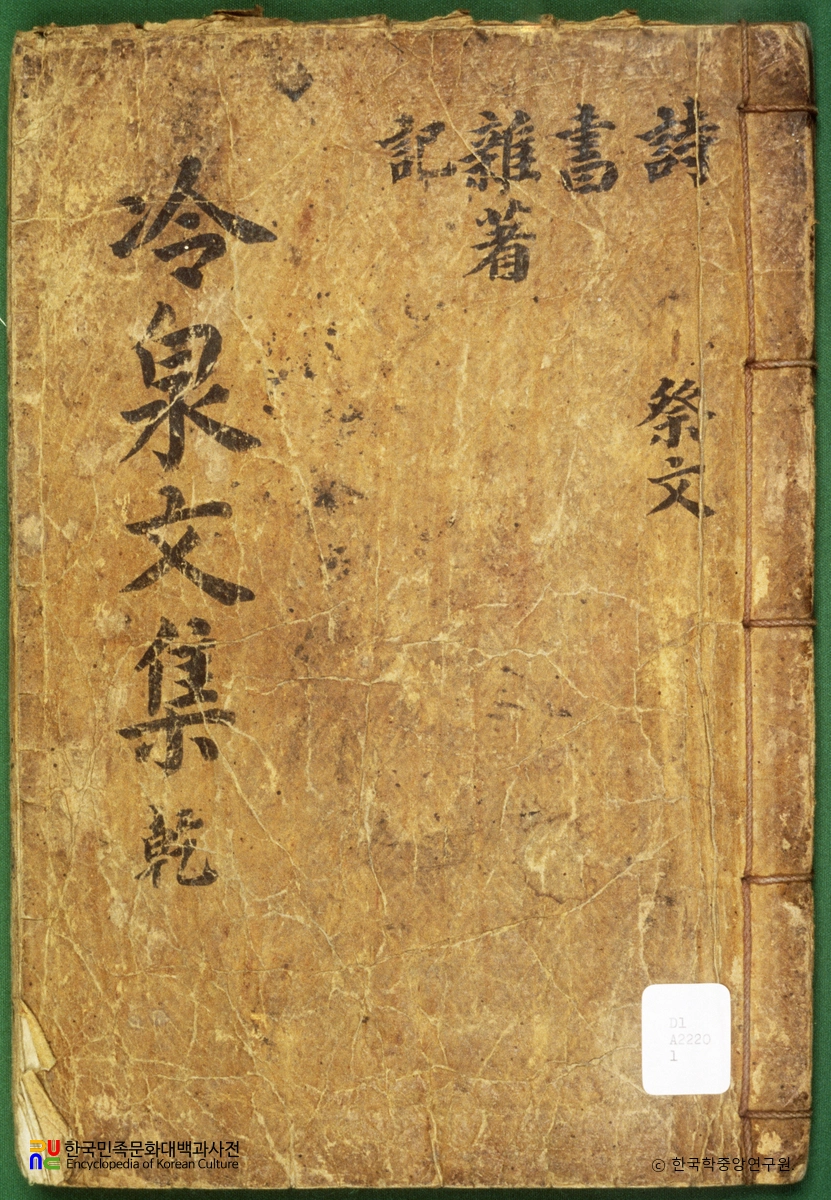 詩
祭文
書
雜著
記
冷泉文集 乾
D1
A2220
1
한국민족문화대백과사전
Encyclopedia of Korean Culture
© 한국학중앙연구원